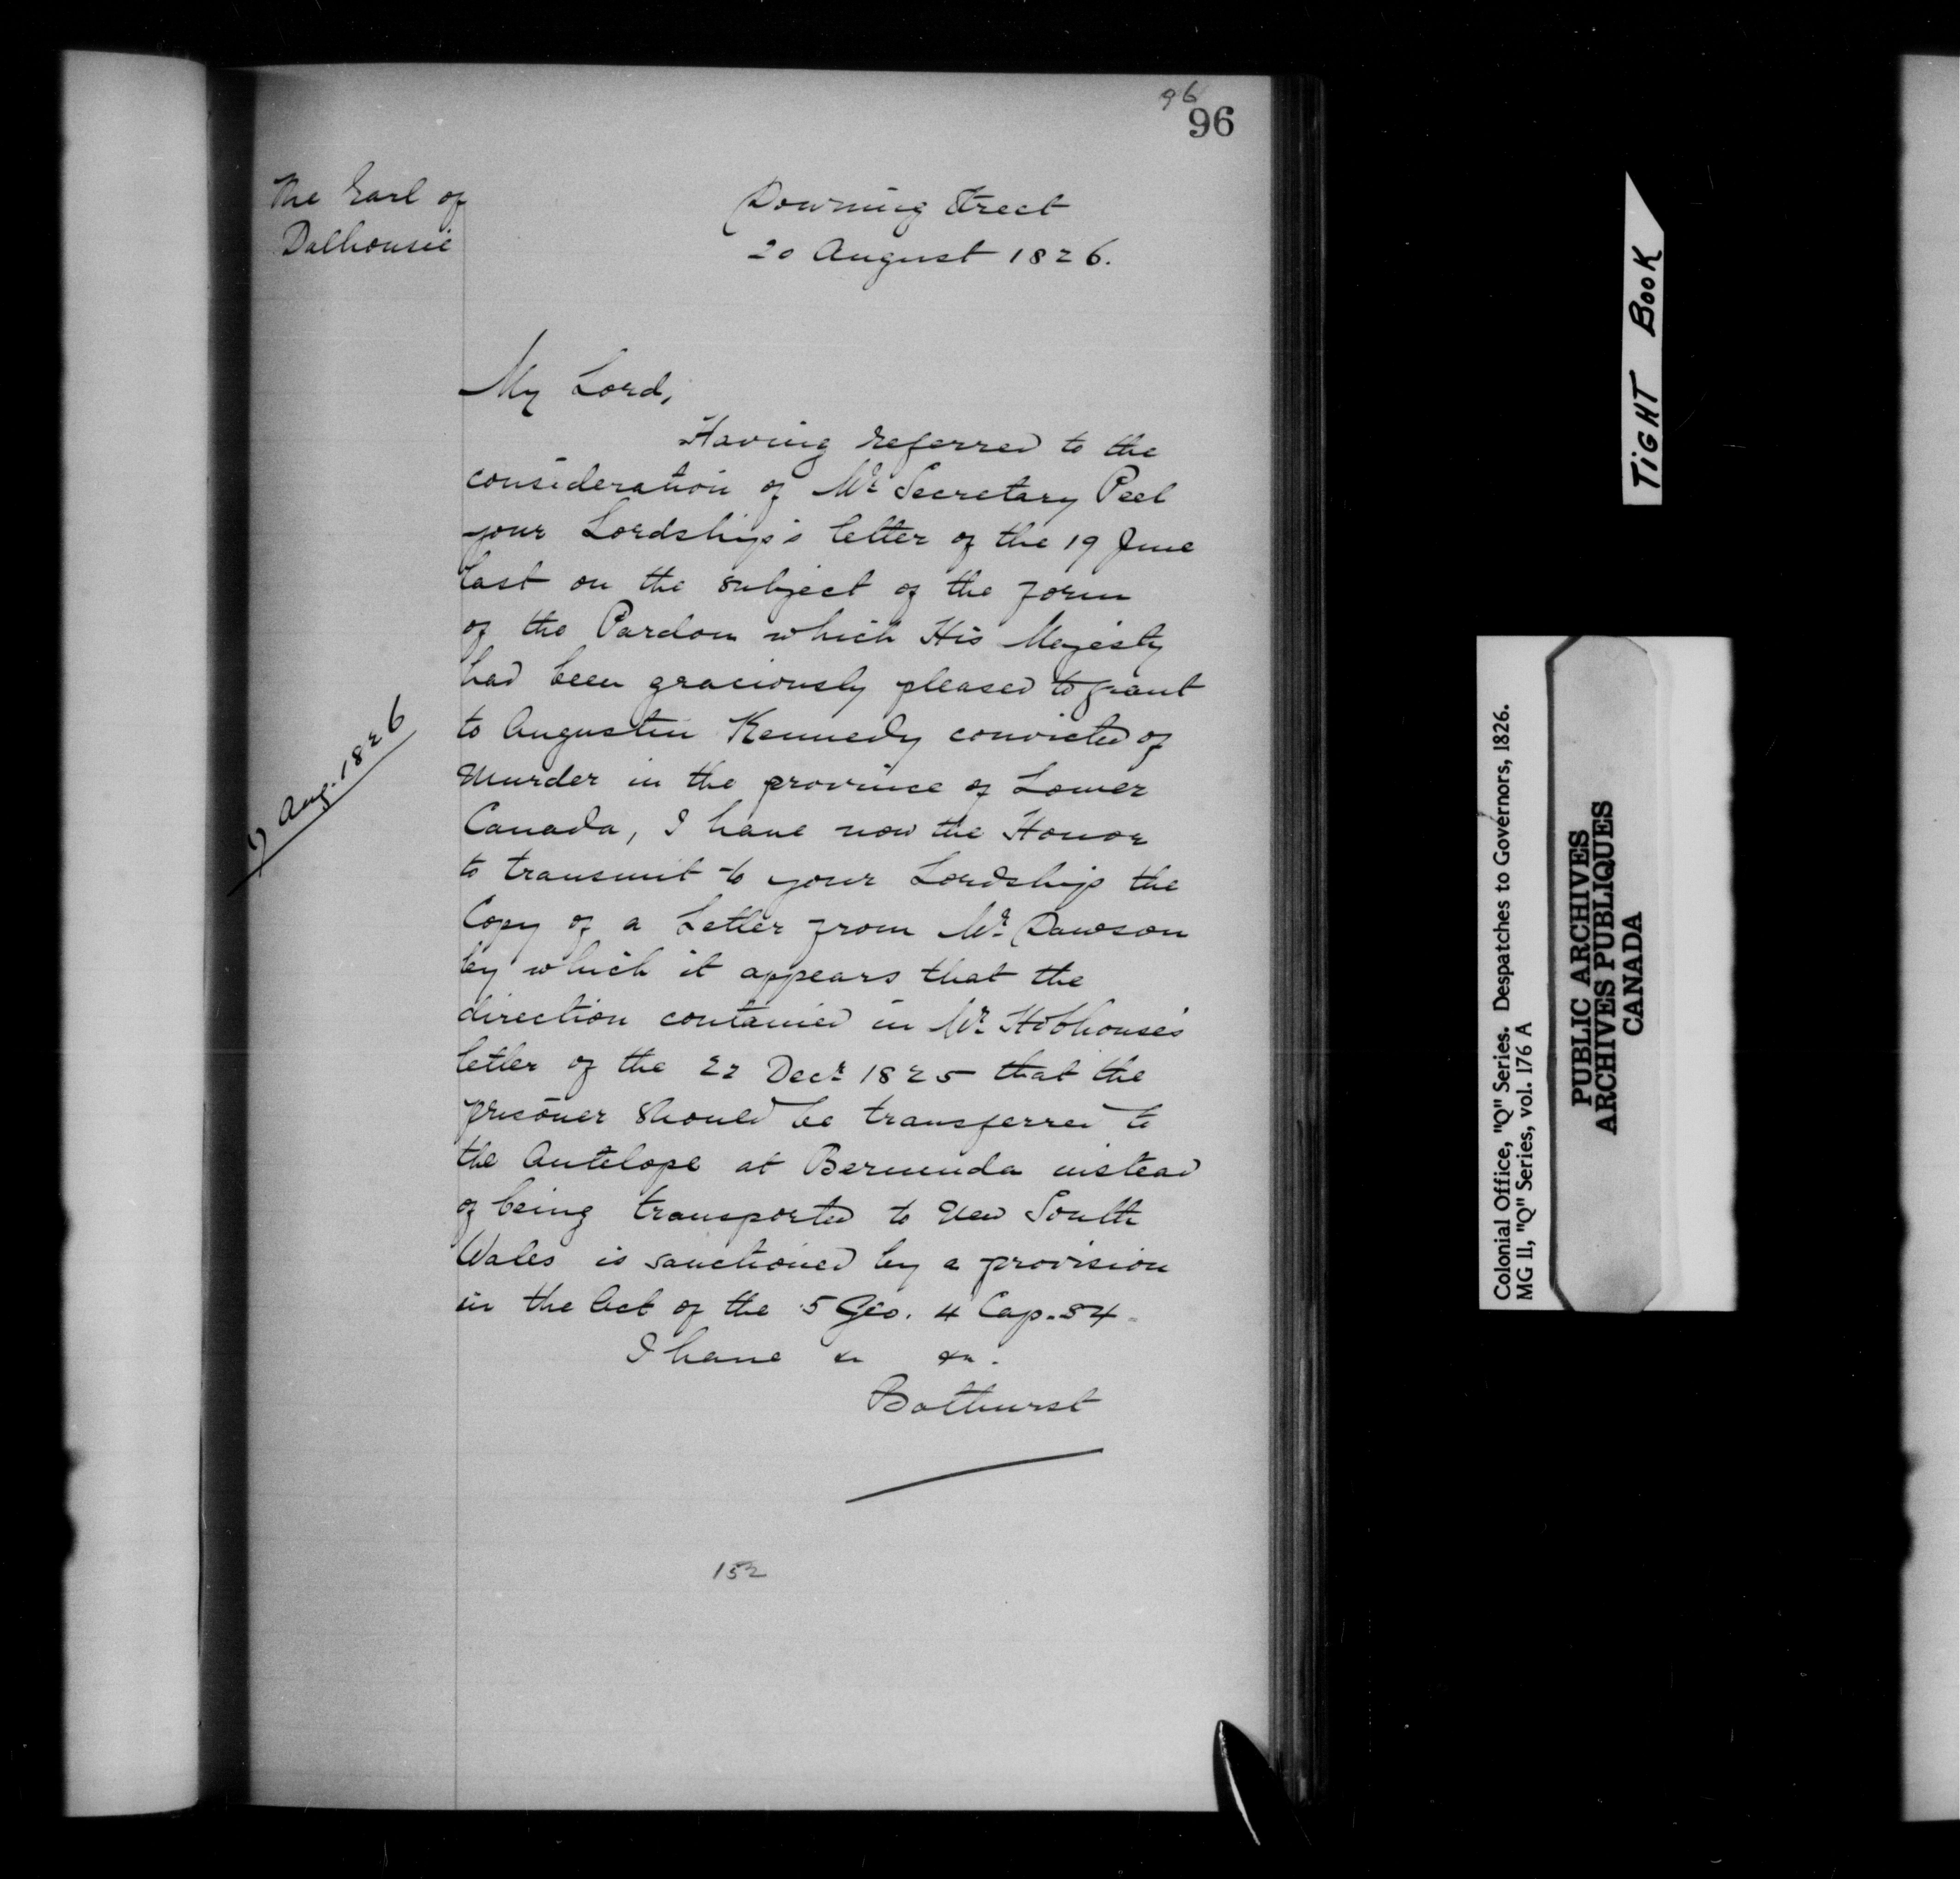 96
96
The Earl of
Dalhousie
Downing Street
20 August 1826.
My Lord,
Having referred to the
consideration of Mr Secretary Peel
your Lordship's letter of the 19 June
last on the subject of the form
of the Pardon which His Majesty
had been graciously pleased to grant
to Augustin Kennedy convicted of
Murder in the province of Lower
Canada, I have now the Honor
to transmit to your Lordship the
Copy of a Letter from Mr Dawson
by which it appears that the
direction contained in Mr Hobhouse's
letter of the 22 Decr 1825 that the
prisoner should be transferred to
the Antelope at Bermuda instead
of being transported to New South
Wales is sanctioned by a provision
in the Act of the 5 Geo. 4 Cap. 84.
I have &c &c.
Bathurst
152
Aug. 1826
TIGHT BOOK
Colonial Office, "Q" Series. Despatches to Governors, 1826.
MG 11, "Q" Series, vol. 176 A
PUBLIC ARCHIVES
ARCHIVES PUBLIQUES
CANADA